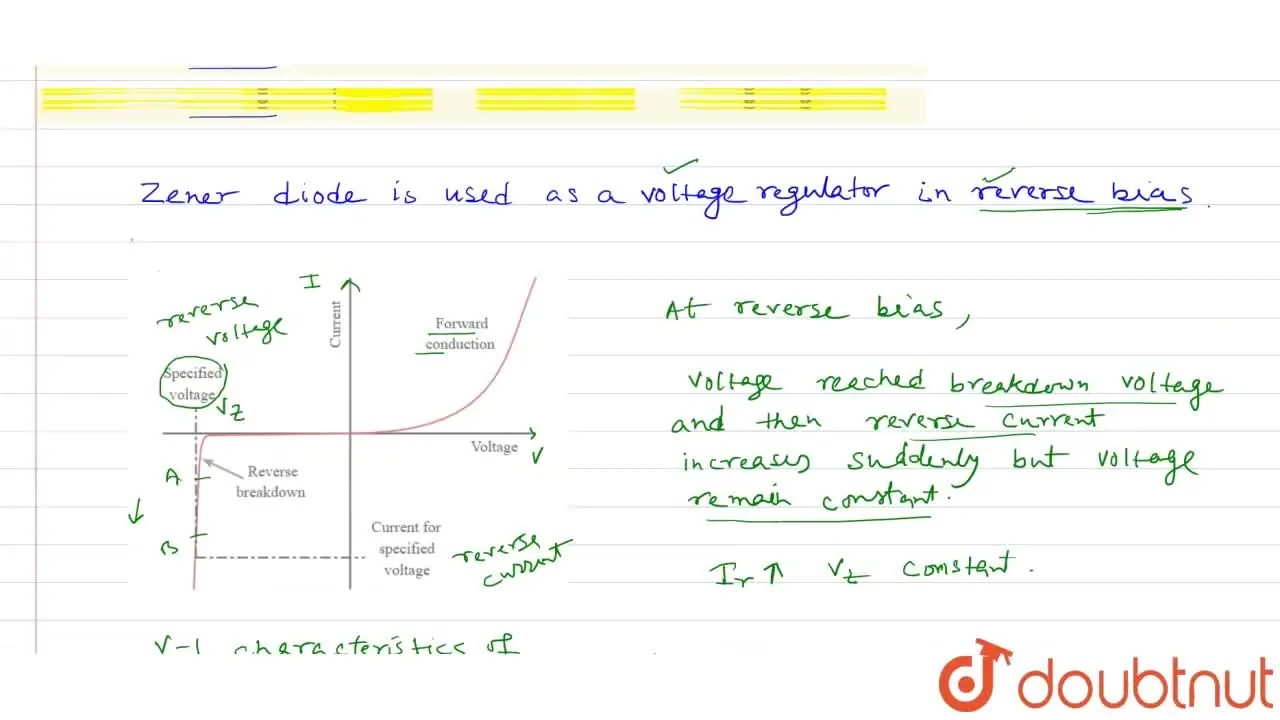 Zener diode is used as a voltage regulator in reverse bias.
I
reverse
voltage
Current
Forward
conduction
Specified
voltage
Vz
Voltage
V
Reverse
breakdown
A
B
Current for
specified
voltage
reverse
current
V-I characteristics of
At reverse bias,
voltage reached breakdown voltage
and then reverse current
increases suddenly but voltage
remain constant.
Ir↑ Vz constant.
doubtnut